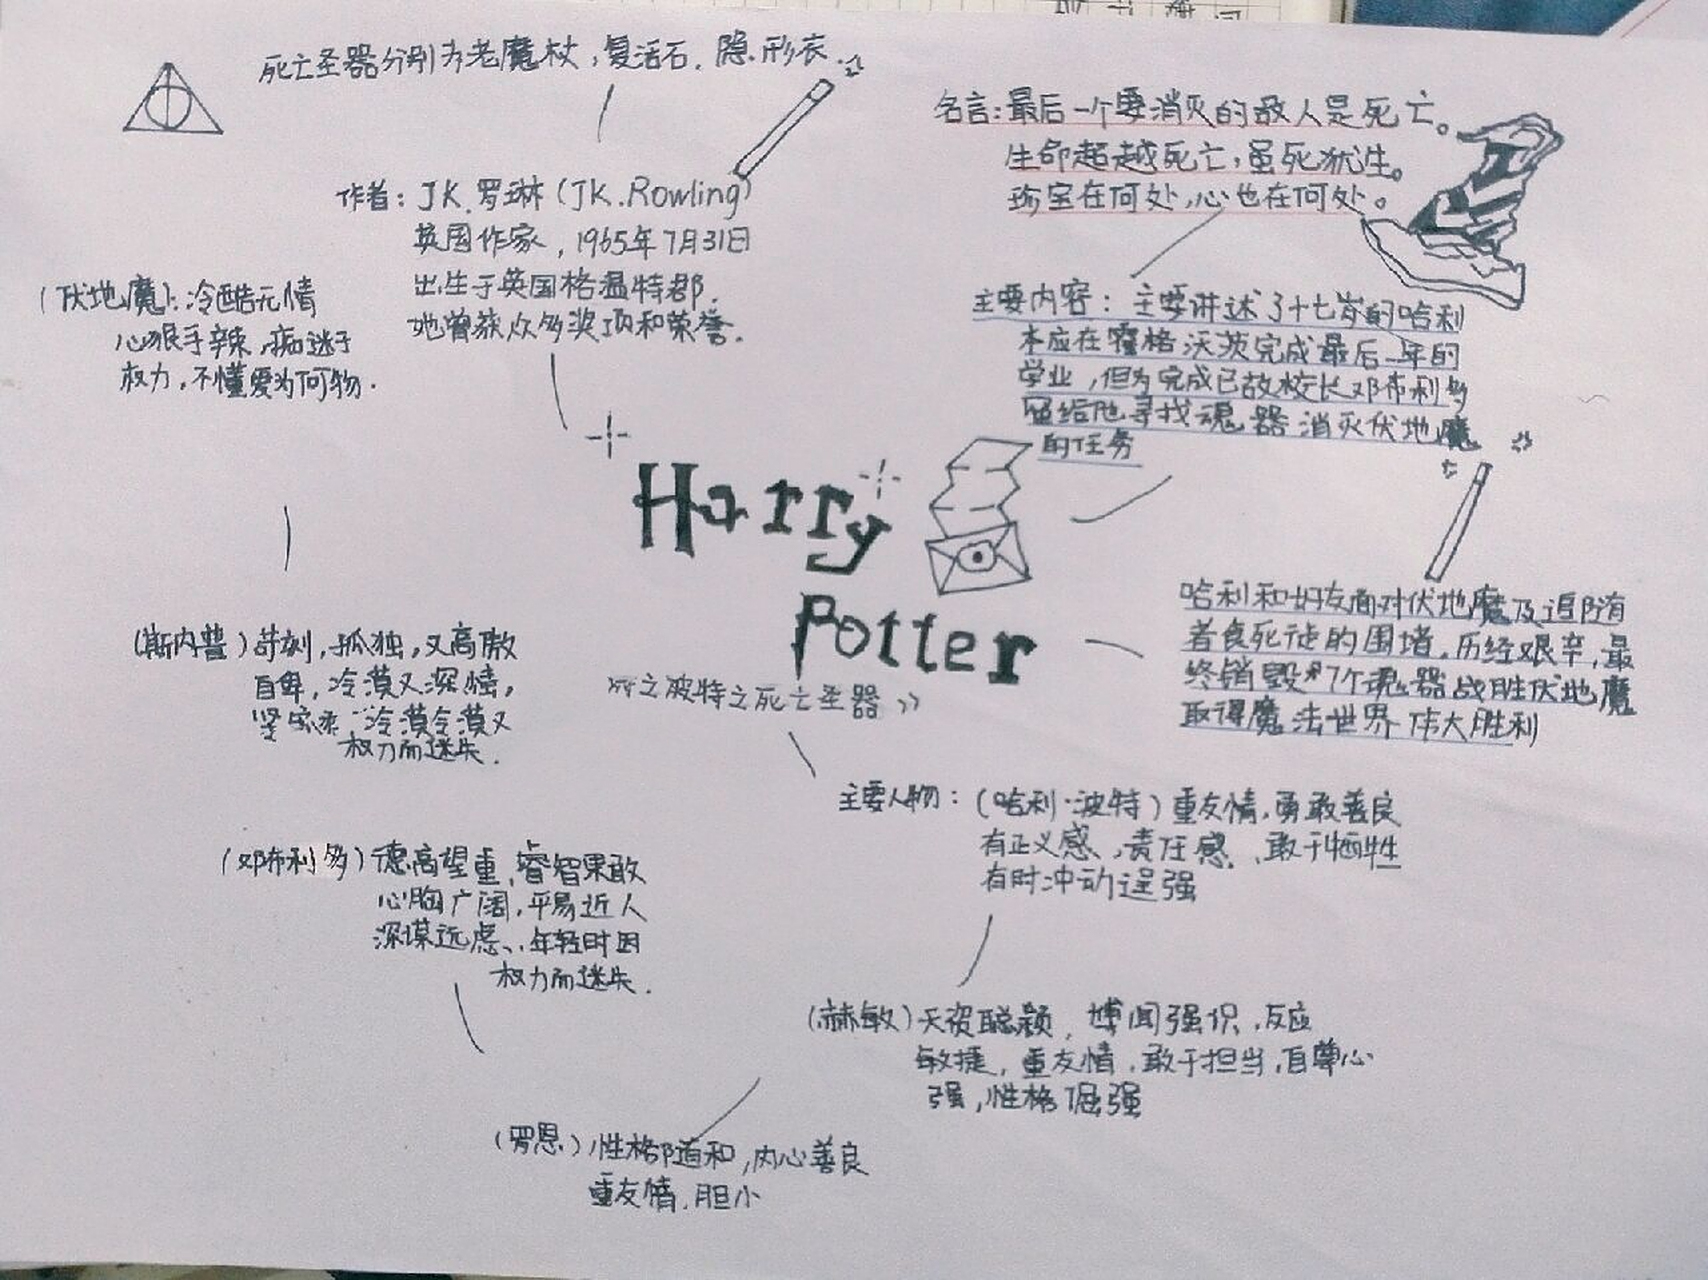 死亡圣器分别为老魔杖,复活石、隐形衣.
作者:JK.罗琳(JK.Rowling)
英国作家,1965年7月31日
出生于英国格温特郡.
她曾获众多奖项和荣誉.
名言:最后一个要消灭的敌人是死亡。
生命超越死亡,虽死犹生。
珍宝在何处,心也在何处。
主要内容:主要讲述了十七岁的哈利
本应在霍格沃茨完成最后一年的
学业,但为完成已故校长邓布利多
留给他寻找魂器消灭伏地魔
的任务
哈利和好友面对伏地魔及追随
者食死徒的围堵,历经艰辛,最
终销毁 7个魂器战胜伏地魔
取得魔法世界伟大胜利
Harry
Potter
之波特之死亡圣器》
主要人物:(哈利·波特)重友情,勇敢善良
有正义感、责任感、敢于牺牲
有时冲动逞强
(赫敏)天资聪颖,博闻强识,反应
敏捷,重友情,敢于担当,自尊心
强,性格倔强
(罗恩)性格随和,内心善良
重友情,胆小
(邓布利多)德高望重,睿智果敢
心胸广阔,平易近人
深谋远虑、,年轻时因
权力而迷失.
(斯内普)苛刻,孤独,又高傲
自卑,冷漠又深情,
坚 冷漠冷漠又
权力而迷失.
(伏地魔):冷酷无情
心狠手辣,痴迷于
权力,不懂爱为何物.